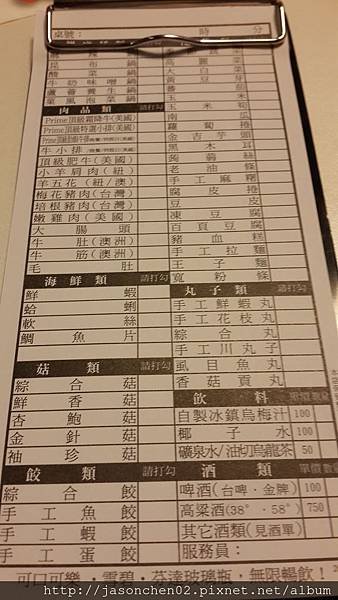 桌號： 時 分
昆布鍋
酸菜鍋
牛奶味噌鍋
蕃薯養生鍋
菜風泡菜鍋
肉品類 請打勾
Prime頂級霜降牛(美國)
Prime頂級特選小排(美國)
牛小排
頂級肥牛(美國)
小羊肩肉(紐)
羊五花(紐/澳)
梅花豬肉(台灣)
培根豬肉(台灣)
嫩雞肉(美國)
大腸頭
牛肚(澳洲)
牛筋(澳洲)
毛肚
海鮮類 請打勾
鮮蝦
蛤蜊
軟絲
鯛魚片
菇類 請打勾
綜合菇
鮮香菇
杏鮑菇
金針菇
袖珍菇
餃類 請打勾
綜合餃
手工魚餃
手工蝦餃
手工蛋餃
高麗菜
大白菜
黃豆芽
蕃茄
玉米
玉米筍
南瓜
蘿蔔
金吉芋頭
黑木耳
蒟蒻絲
老油條
手工麻糬
腐皮捲
豆皮
凍豆腐
百頁豆腐
豬血糕
手工拉麵
王子麵
寬粉條
丸子類 請打勾
手工鮮蝦丸
手工花枝丸
綜合丸
手工川丸子
虱目魚丸
香菇貢丸
飲料 單價 數量
自製冰鎮烏梅汁 100
椰子水 100
礦泉水/油切烏龍茶 50
酒類 單價 數量
啤酒(台啤·金牌) 100
高粱酒(38°·58°) 750
其它酒類(見酒單)
服務員：
可口可樂·雪碧·芬達玻璃瓶，無限暢飲！
http://jasonchen02.pixnet.net/album/